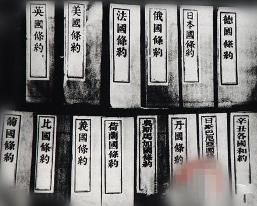 英國條約
美國條約
法國條約
俄國條約
日本國條約
德國條約
葡國條約
比國條約
義國條約
荷蘭國條約
奧斯馬加國條約
丹國條約
辛丑各國和約